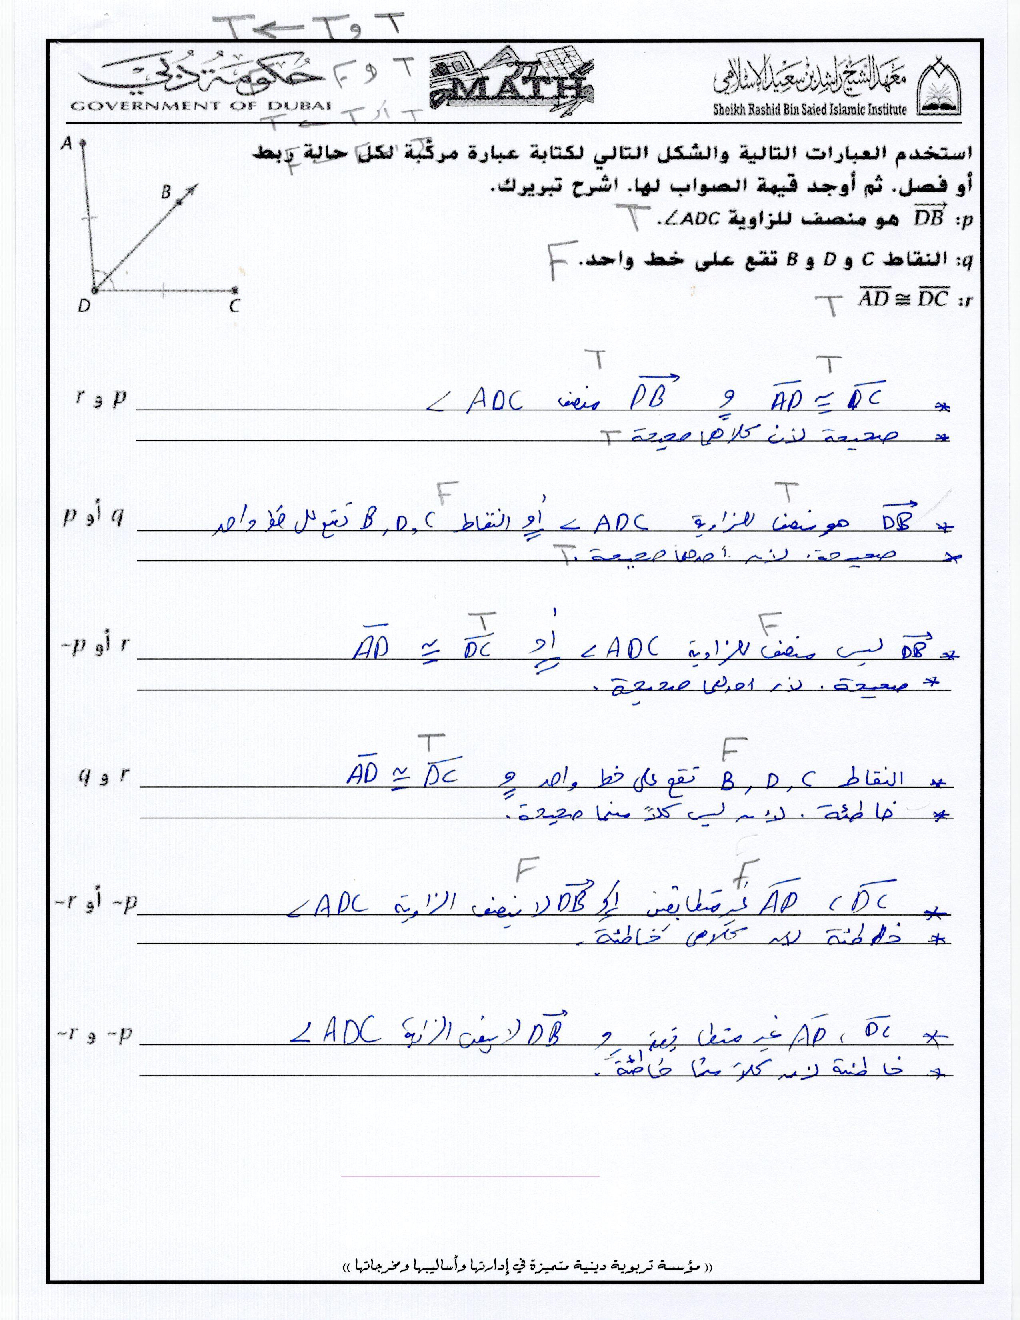 T و T → T
حكومة دبي
F و T
MATH
معهد الشيخ راشد بن سعيد الإسلامي
GOVERNMENT OF DUBAI
Sheikh Rashid Bin Saied Islamic Institute
T أو T → T
A
B
D
C
استخدم العبارات التالية والشكل التالي لكتابة عبارة مركّبة لكل حالة ربط
أو فصل. ثم أوجد قيمة الصواب لها. اشرح تبريرك.
p: DB هو منصف للزاوية ADC∠. T
q: النقاط C و D و B تقع على خط واحد. F
r: AD ≅ DC T
T T
p و r
* AD ≅ DC و DB منصف ∠ ADC
* صحيحة لأن كلاهما صحيحة T
T F
q أو p
* DB هو منصف للزاوية ∠ ADC أو النقاط B, D, C تقع على خط واحد
* صحيحة. لأن أحدهما صحيحة. T
F T
r أو ~p
* DB ليس منصف للزاوية ∠ ADC أو AD ≅ DC
* صحيحة. لأن احدهما صحيحة.
F T
r و q
* النقاط B, D, C تقع على خط واحد و AD ≅ DC
* خاطئة. لأنه ليس كلاً منهما صحيحة.
F F
~p أو ~r
* AD، DC غير متطابقين أو DB لا ينصف الزاوية ∠ ADC
* خاطئة لأن كلاهما خاطئة.
~p و ~r
* AD، DC غير متطابقين و DB لا ينصف الزاوية ∠ ADC
* خاطئة لأن كلاً منهما خاطئة.
(( مؤسسة تربوية دينية متميزة في إدارتها وأساليبها ومخرجاتها ))